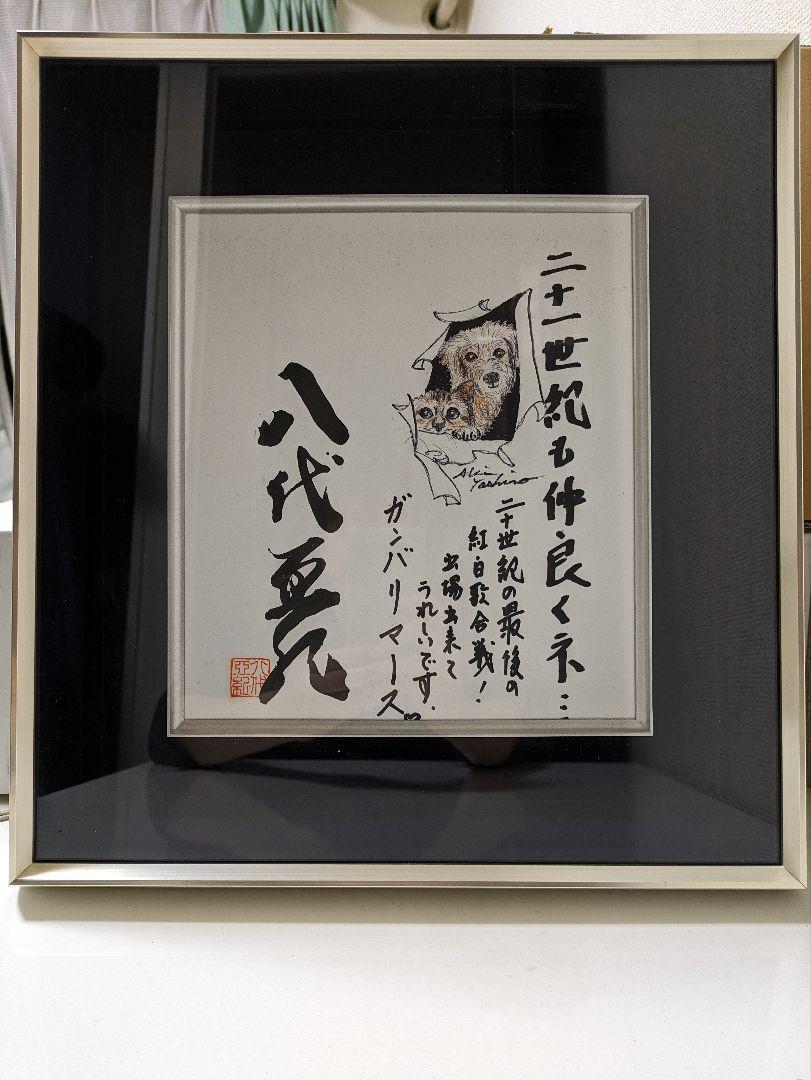 二十一世紀も仲良くネ…
Aki
Yashiro
二十世紀の最後の
紅白歌合戦！
出場出来て
うれしいです。
ガンバリマース♥
八代亜紀
八代
亜紀